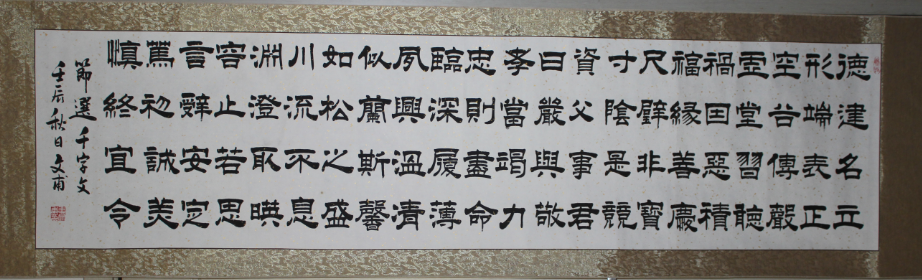 德建名立
形端表正
空谷傳聲
虛堂習聽
禍因惡積
福緣善慶
尺璧非寶
寸陰是競
資父事君
曰嚴與敬
孝當竭力
忠則盡命
臨深履薄
夙興溫凊
似蘭斯馨
如松之盛
川流不息
淵澄取暎
容止若思
言辭安定
篤初誠美
慎終宜令
節選千字文
壬辰秋日文甫